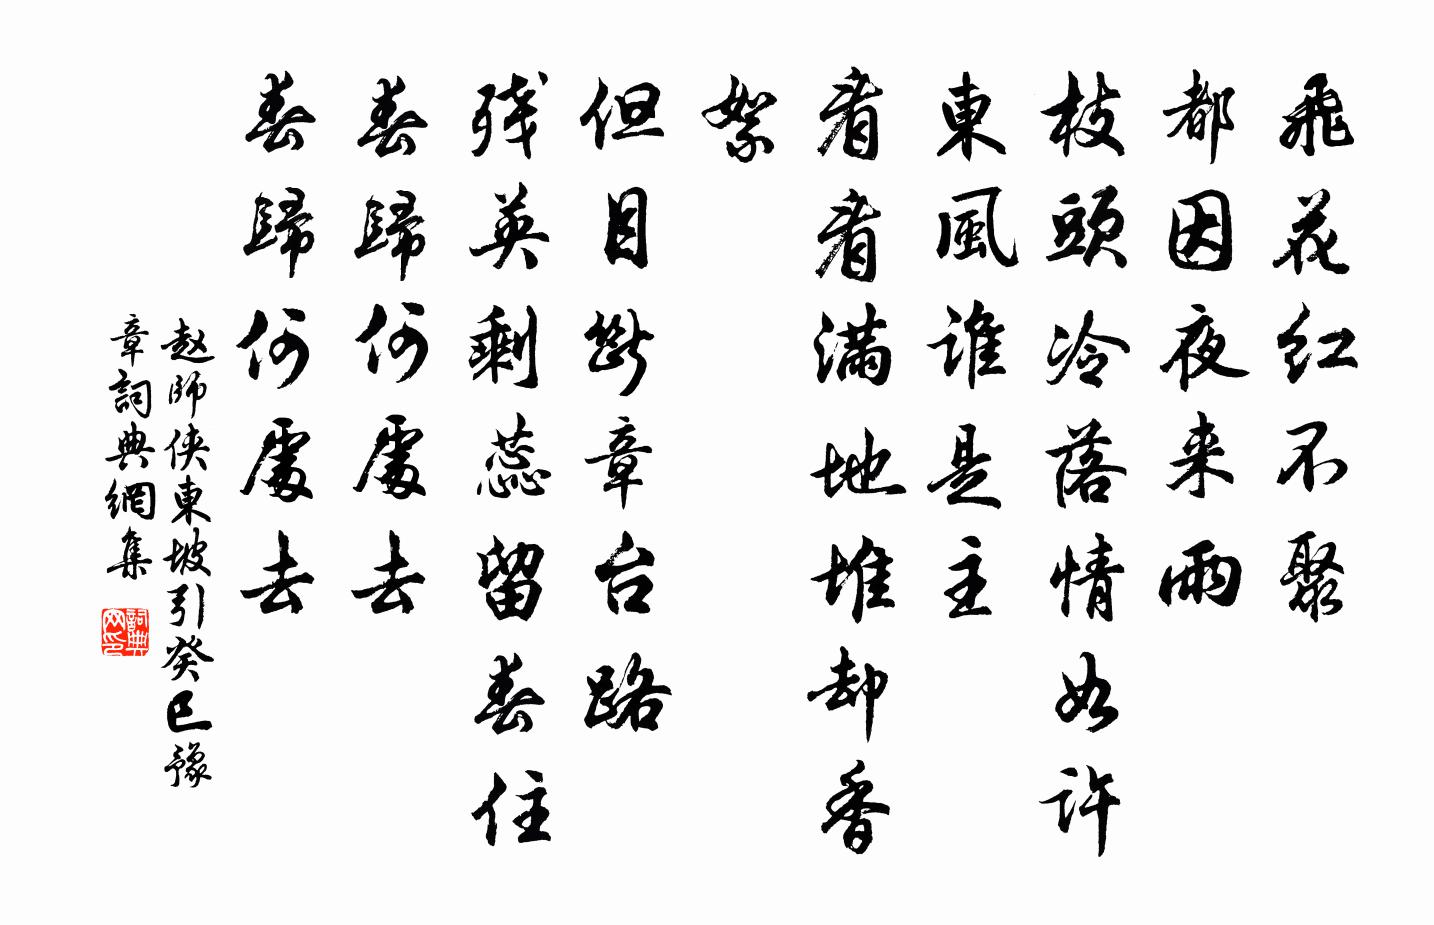 飛花红不聚
都因夜来雨
枝頭冷落情如许
東風誰是主
看看满地堆却香
絮
但目断章台路
残英剩蕊留春住
春歸何處去
春歸何處去
赵師侠東坡引癸巳豫
章詞典網集
詞典
网印